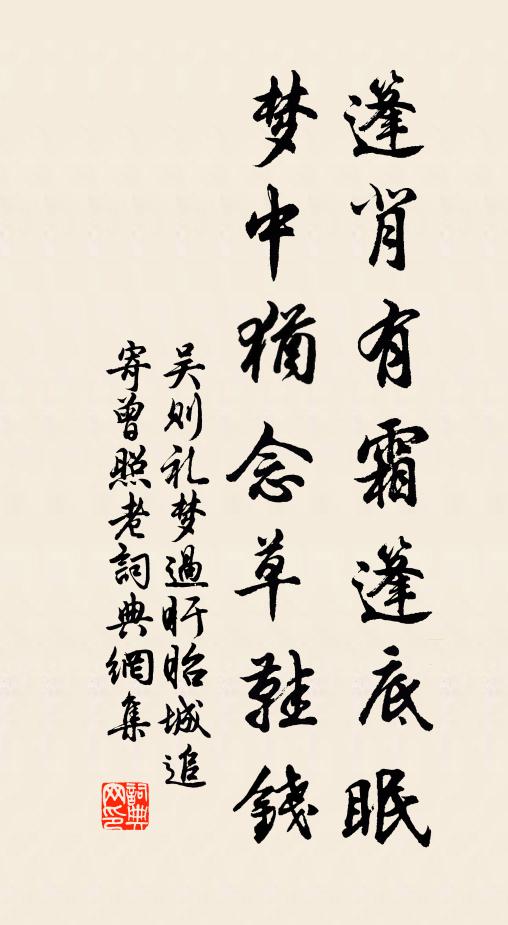 篷背有霜篷底眠
梦中猶念草鞋錢
吴则礼梦過盱眙城追
寄曾照老詞典網集
詞典
网印